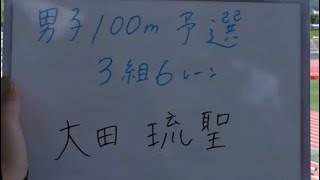 男子100m 予選
3組6レーン
大田 琉聖